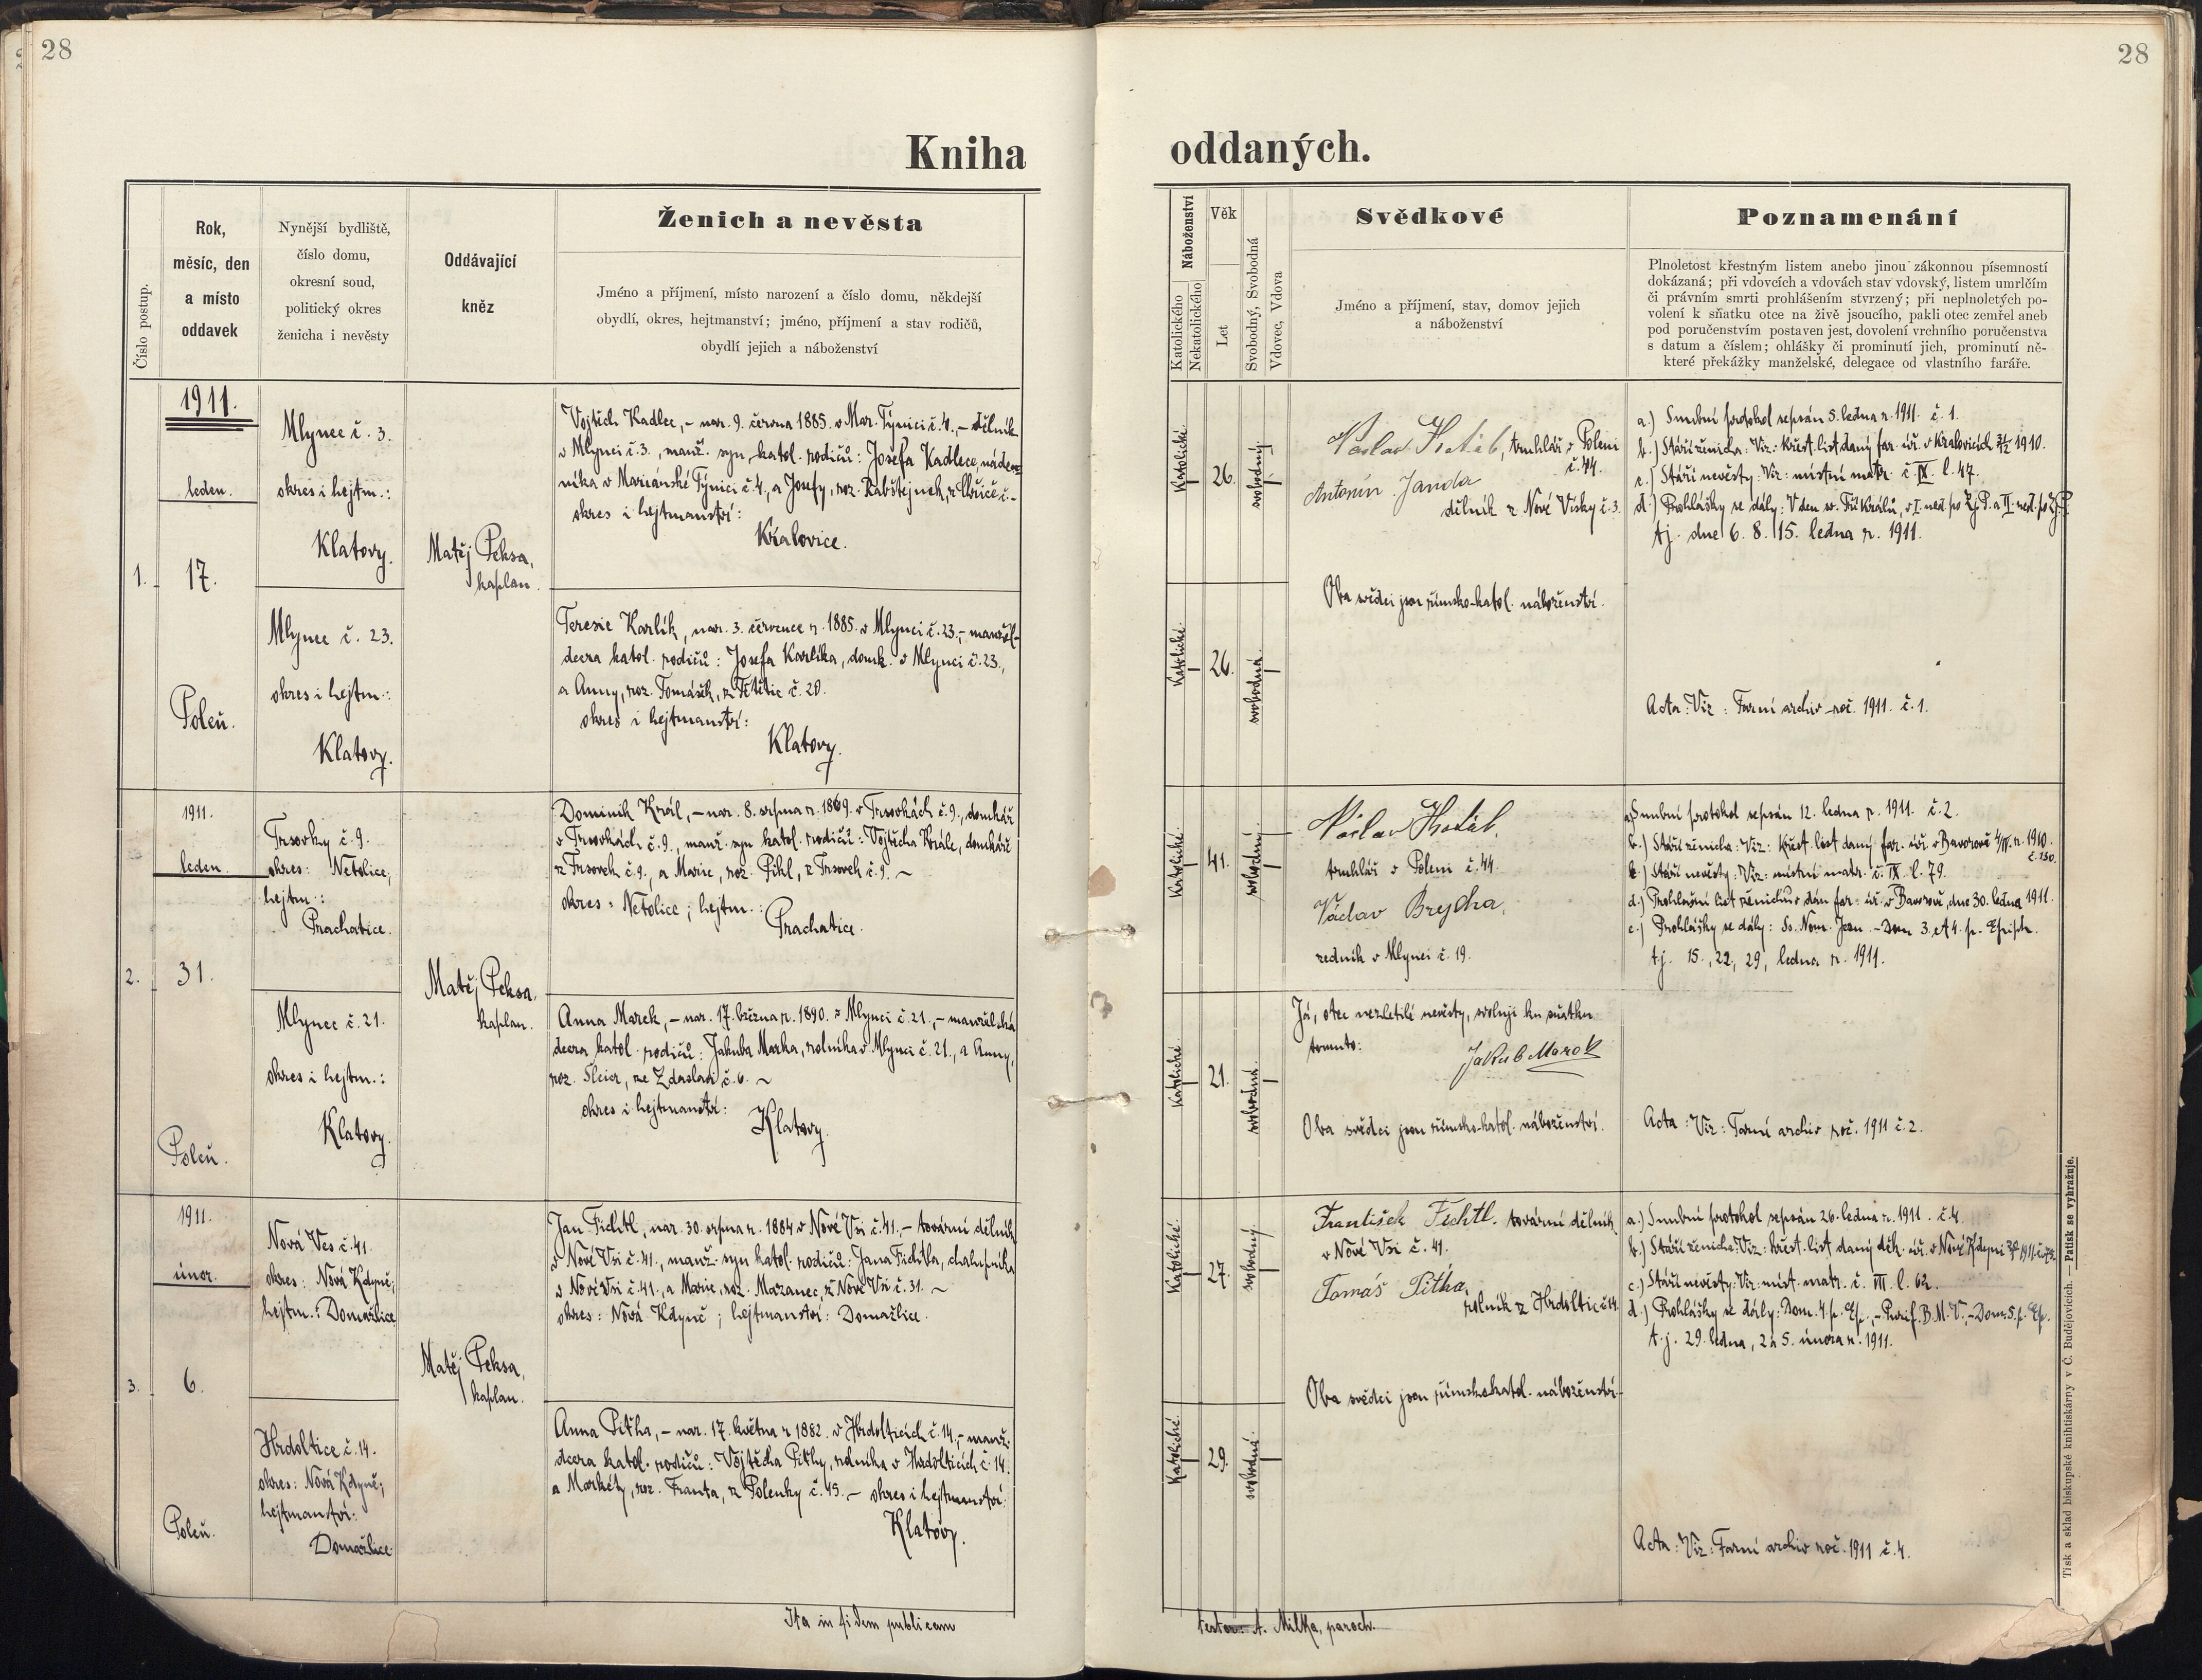 28
28
Kniha
oddaných.
Číslo postup.
Rok,
měsíc, den
a místo
oddavek
Nynější bydliště,
číslo domu,
okresní soud,
politický okres
ženicha i nevěsty
Oddávající
kněz
Ženich a nevěsta
Jméno a příjmení, místo narození a číslo domu, někdejší
obydlí, okres, hejtmanství; jméno, příjmení a stav rodičů,
obydlí jejich a náboženství
Náboženství
Katolického
Nekatolického
Věk
Let
Svobodný, Svobodná
Vdovec, Vdova
Svědkové
Jméno a příjmení, stav, domov jejich
a náboženství
Poznamenání
Plnoletost křestným listem anebo jinou zákonnou písemností
dokázaná; při vdovcích a vdovách stav vdovský, listem umrlčím
či právním smrti prohlášením stvrzený; při neplnoletých po-
volení k sňatku otce na živě jsoucího, pakli otec zemřel aneb
pod poručenstvím postaven jest, dovolení vrchního poručenstva
s datum a číslem; ohlášky či prominutí jich, prominutí ně-
které překážky manželské, delegace od vlastního faráře.
1911.
leden.
1.
17.
Poleň.
Mlynec č. 3.
okres i hejtm.:
Klatovy.
Mlynec č. 23.
okres i hejtm.:
Klatovy.
Matěj Peksa,
kaplan.
Vojtěch Kadlec, – nar. 9. června 1885. v Mar. Týnici č. 4., – dělník
v Mlynci č. 3., manž. syn katol. rodičů: Josefa Kadlece, náden-
níka v Mariánské Týnici č. 4., a Josefy, roz. Rabštejnek, z
okres i hejtmanství:
Kralovice.
Terezie Karlík, nar. 3. července r. 1885. v Mlynci č. 23., – manžel.
dcera katol. rodičů: Josefa Karlíka, domk. v Mlynci č. 23.,
a Anny, roz. Tomášek, z č. 20.
okres i hejtmanství:
Klatovy.
Katolické
26.
svobodný
Katolické
26.
svobodná
Václav Hostáb, truhlář v Poleni
č. 44.
Antonín Janda
dělník z Nové Vísky č. 3.
Oba svědci jsou římsko-katol. náboženství.
a.) Snubní protokol sepsán 5. ledna r. 1911. č. 1.
b.) Stáří ženicha: Viz: křest. list daný far. úř. v Kralovicích 1910.
c.) Stáří nevěsty: Viz: místní matr. č. IX. l. 47.
d.) Prohlášky se dály: V den sv. Tří Králů, v I. ned. po Zj. P. a II. ned. po Zj. P.
tj. dne 6. 8. 15. ledna r. 1911.
Acta: Viz: Farní archiv roč. 1911. č. 1.
1911.
leden.
2.
31.
Poleň.
Trsovky č. 9.
okres: Netolice,
hejtm.:
Prachatice.
Mlynec č. 21.
okres i hejtm.:
Klatovy.
Matěj Peksa.
kaplan.
Dominik Král, – nar. 8. srpna r. 1869. v Trsovkách č. 9., domkář
v Trsovkách č. 9., manž. syn katol. rodičů: Vojtěcha Krále, domkáře
z Trsovek č. 9., a Marie, roz. Pikl, z Trsovek č. 9. ~
okres: Netolice; hejtm.:
Prachatice.
Anna Marek, – nar. 17. března r. 1890. v Mlynci č. 21., – manželská
dcera katol. rodičů: Jakuba Marka, rolníka v Mlynci č. 21., a Anny,
roz. ze Zdaslavi č. 6. ~
okres i hejtmanství:
Klatovy.
Katolické
41.
svobodný
Katolické
21.
svobodná
Václav Hostáb,
truhlář v Poleni č. 44.
Václav Brejcha,
zedník v Mlynci č. 19.
Já, otec nezletilé nevěsty, svoluji ku sňatku
tomuto:
Jakub Marek
Oba svědci jsou římsko-katol. náboženství.
a) Snubní protokol sepsán 12. ledna r. 1911. č. 2.
b.) Stáří ženicha: Viz: Křest. list daný far. úř. v Bavorově r. 1910.
č. 130.
c.) Stáří nevěsty: Viz: místní matr. č. IX. l. 79.
d.) Prohlašní list ženichův dán far. úř. v Bavorově, dne 30. ledna 1911.
e.) Prohlášky se dály: Ss. Nom. Jesu. – Dom 3. et 4. p. Epiph.
tj. 15., 22, 29, ledna r. 1911.
Acta: Viz: Farní archiv roč. 1911 č. 2.
1911.
únor.
3.
6.
Poleň.
Nová Ves č. 41.
okres: Nová Kdyně;
hejtm.: Domažlice
Hrdoltice č. 14.
okres: Nová Kdyně;
hejtmanství:
Domažlice.
Matěj Peksa,
kaplan.
Jan Fichtl, nar. 30. srpna r. 1884 v Nové Vsi č. 41. – tovární dělník
v Nové Vsi č. 41., manž. syn katol. rodičů: Jana Fichtla, chalupníka
v Nové Vsi č. 41., a Marie, roz. Mazanec, z Nové Vsi č. 31. ~
okres: Nová Kdyně; hejtmanství: Domažlice.
Anna Pitha, – nar. 17. května r 1882. v Hrdolticích č. 14., – manž.
dcera katol. rodičů: Vojtěcha Pithy, rolníka v Hrdolticích č. 14.
a Markéty, roz. Franta, z Polenky č. 45. – okres i hejtmanství:
Klatovy.
Katolické
27.
svobodný
Katolické
29.
svobodná
František Fichtl. tovární dělník
v Nové Vsi č. 41.
Tomáš Pitha,
rolník z Hrdoltic č 14.
Oba svědci jsou římskokatol. náboženství.
a.) Snubní protokol sepsán 26. ledna r. 1911. č. 4.
b.) Stáří ženicha: Viz: křest. list daný děk. úř. v Nové Kdyni
c.) Stáří nevěsty: Viz: míst. matr. č. VIII. l. 62.
d.) Prohlášky se dály: Dom. 4. p. Ep., – Purif. B. M. V., – Dom. 5. p. Ep.
t. j. 29. ledna, 2 a 5. února r. 1911.
Acta: Viz: Farní archiv roč. 1911 č. 4.
Ita in fidem publicam
testor: A. Milka, paroch.
Tisk a sklad biskupské knihtiskárny v Č. Budějovicích. – Patisk se vyhražuje.